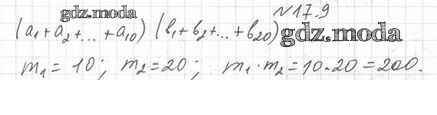 №17.9
gdz.moda
(a₁+a₂+...+a₁₀) (b₁+b₂+...+b₂₀) gdz.moda
m₁=10; m₂=20; m₁·m₂=10·20=200.